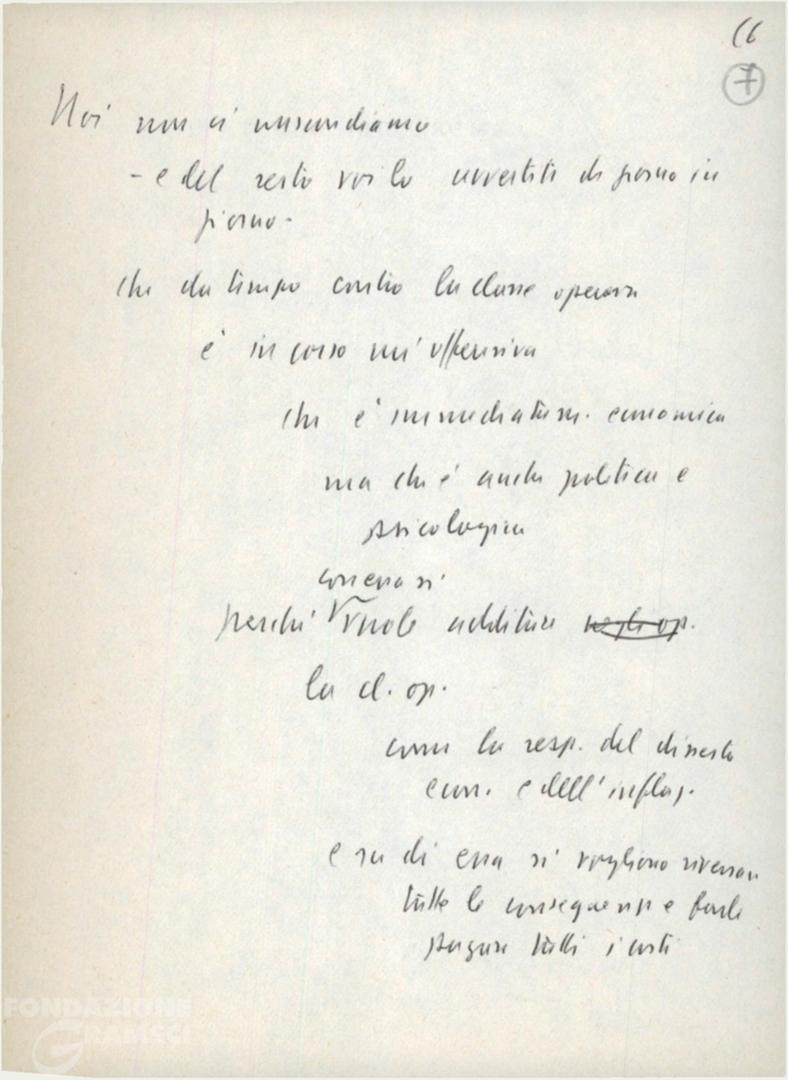 66
7
Noi non ci nascondiamo
- e del resto voi lo avvertite di giorno in
giorno -
che da tempo contro la classe operaia
è in corso un'offensiva
che è immediatam. economica
ma che è anche politica e
psicologica
con essa si
perché vuole additare negli op.
la cl. op.
come la resp. del dissesto
econ. e dell'inflaz.
e su di essa si vogliono riversare
tutte le conseguenze e farle
pagare tutti i costi
FONDAZIONE
GRAMSCI